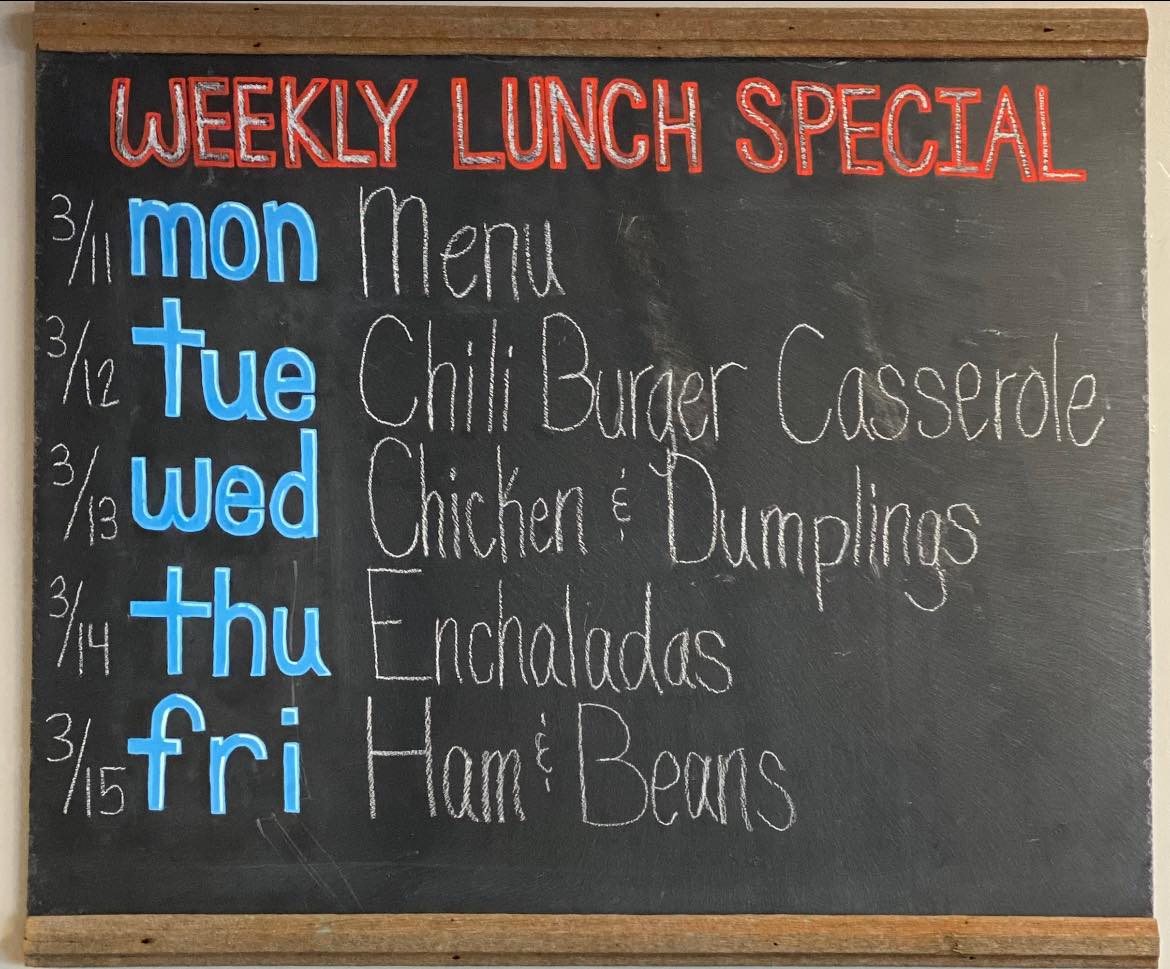 WEEKLY LUNCH SPECIAL
3/11 mon Menu
3/12 tue Chili Burger Casserole
3/13 wed Chicken & Dumplings
3/14 thu Enchaladas
3/15 fri Ham & Beans